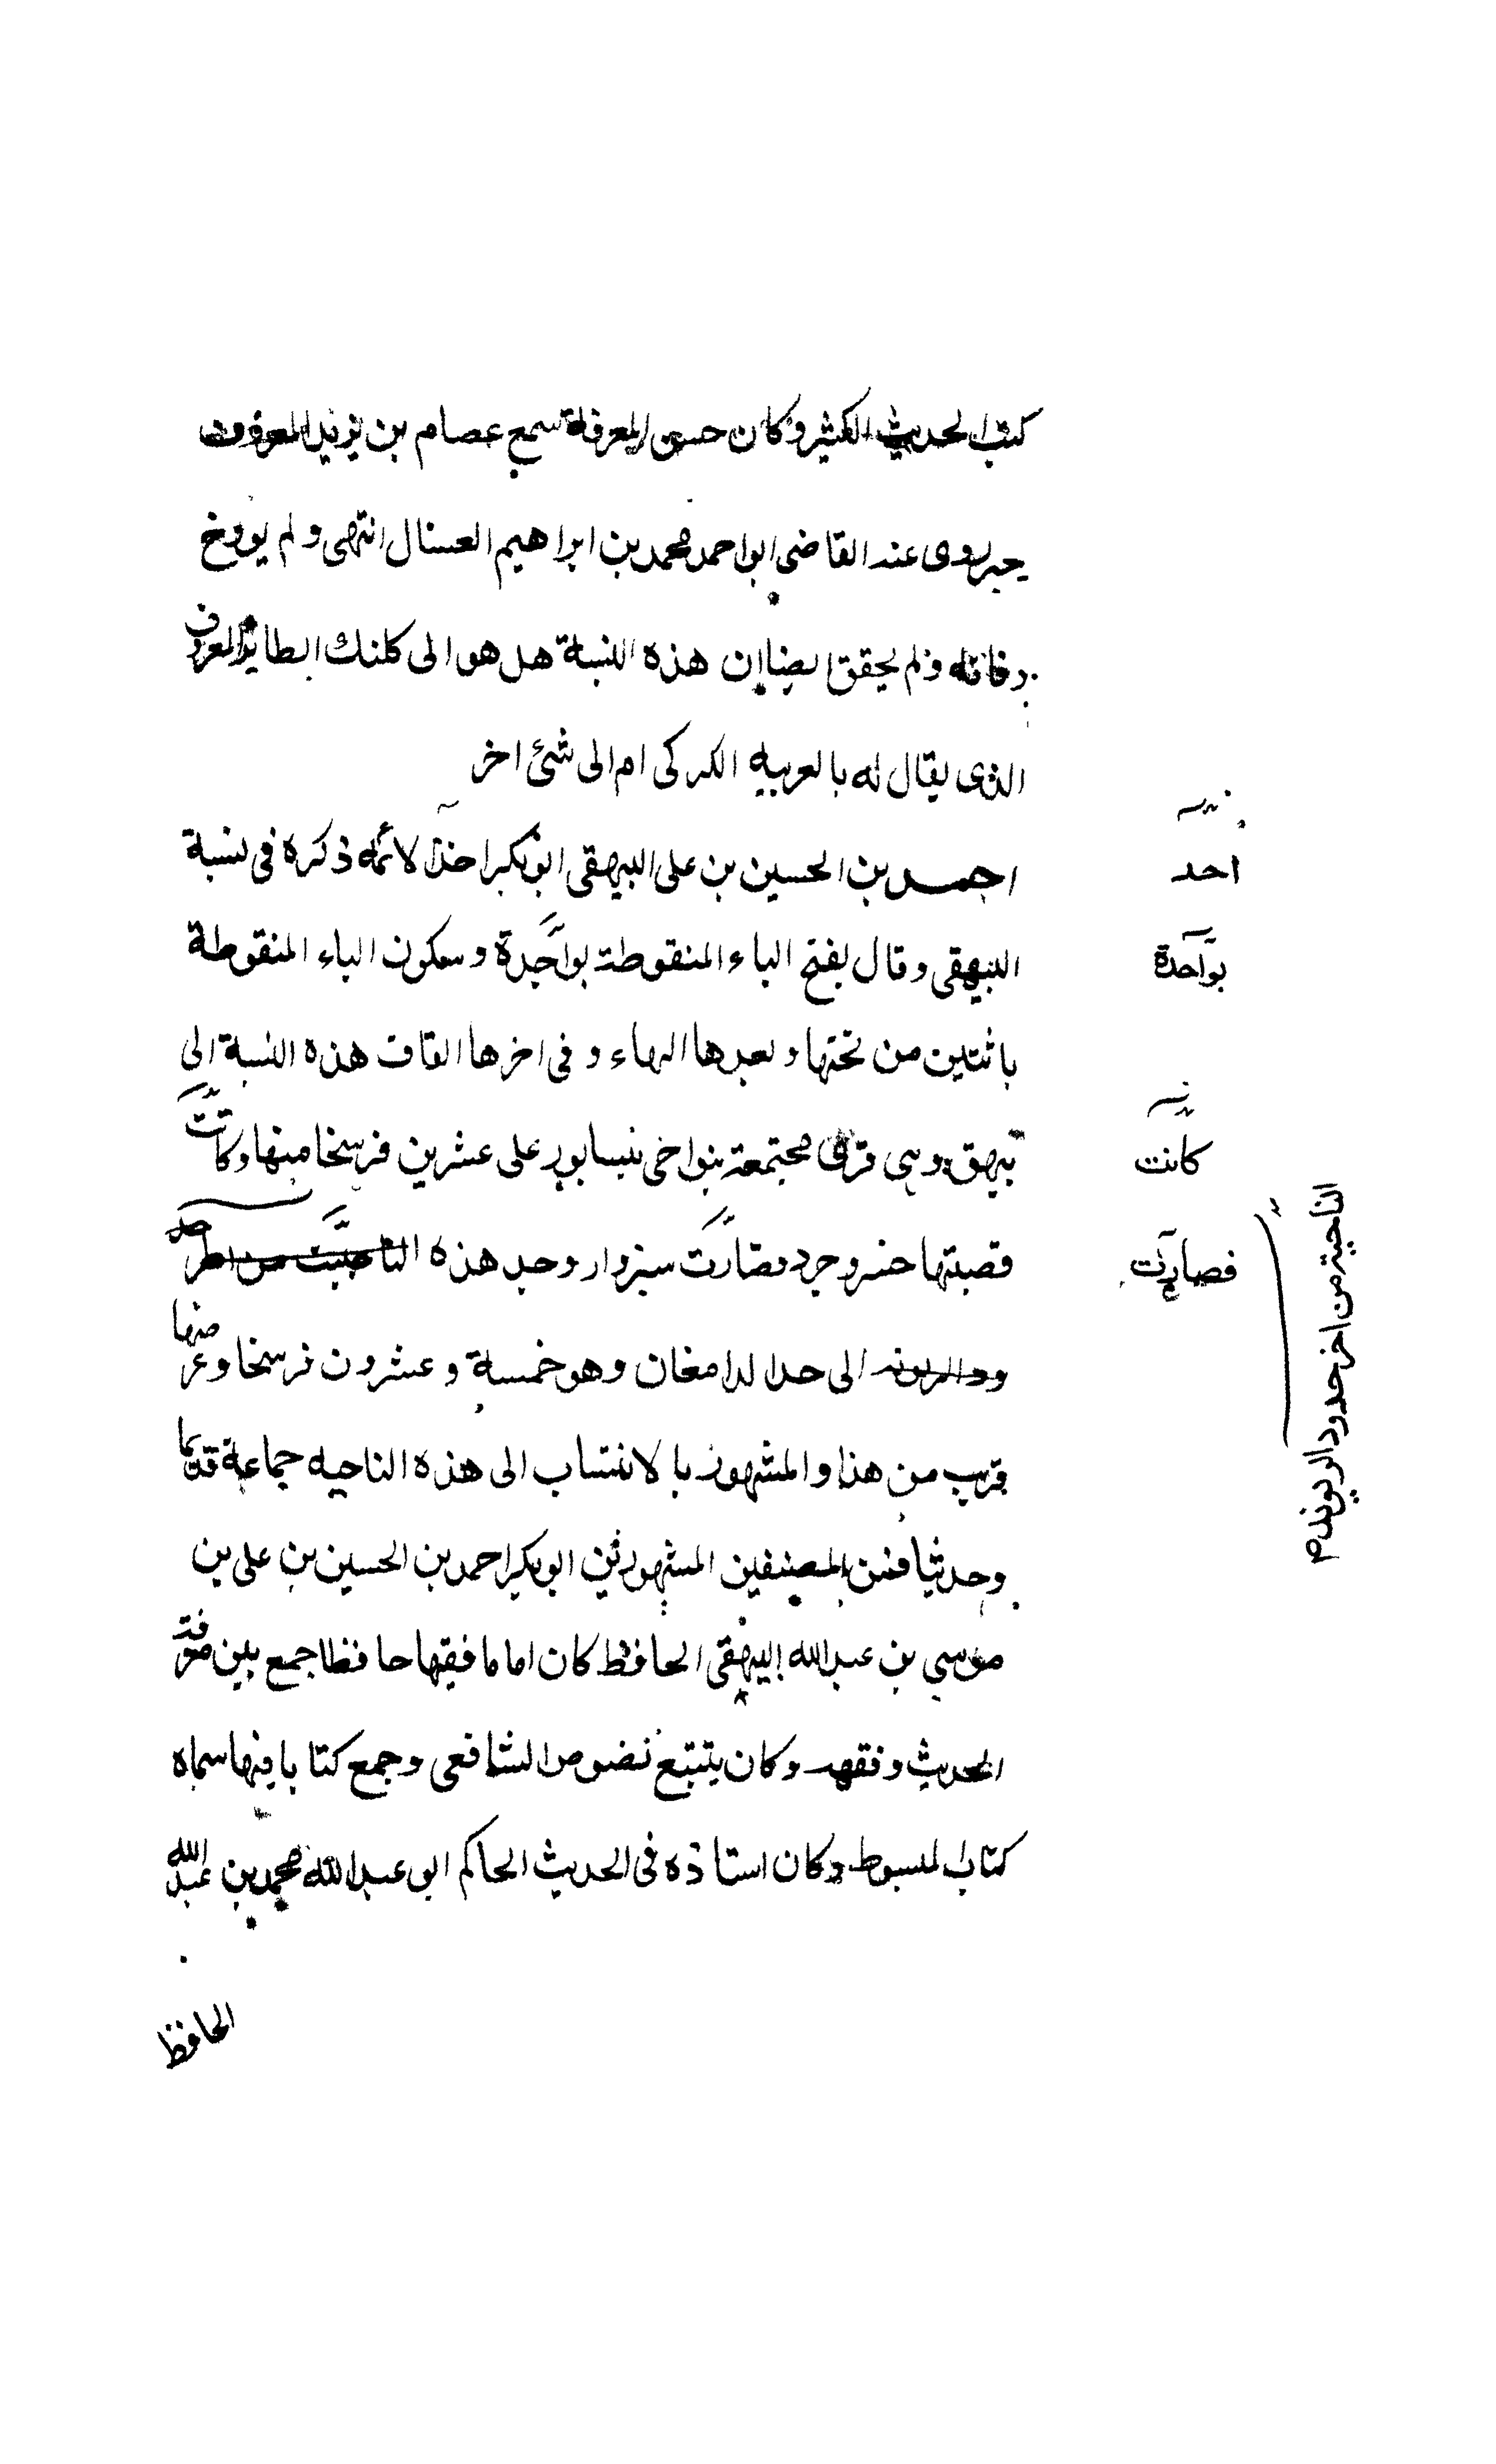 كتب الحديث الكثير وكان حسن المعرفة سمع عصام بن يزيد المعروف
بجبر روى عنه القاضى ابو احمد محمد بن ابراهيم العسال انتهى ولم يورخ
وفاته ولم يحقق ايضا ان هذه النسبة هل هو الى كلنك الطاير المعروف
الذى يقال له بالعربيه الكركى ام الى شئ اخر
احمد بن الحسين بن على البيهقى ابو بكر احد الائمه ذكره فى نسبة
احد
البيهقى وقال بفتح الباء المنقوطة بواحدة وسكون الياء المنقوطة
بواحدة
باثنتين من تحتها وبعدها الهاء وفى اخرها القاف هذه النسبة الى
بيهق وهى قرى مجتمعة بنواحى نيسابور على عشرين فرسخا منها وكانت
كانت
قصبتها خسروجرد فصارت سبزوار وحد هذه
فصارت
الناحية من اخر حدود الريوند م
الى حد الدامغان وهو خمسة وعشرون فرسخا وعرضها
قريب من هذا والمشهور بالانتساب الى هذه الناحيه جماعة قديما
وحديثا فمن المصنفين المشهورين ابو بكر احمد بن الحسين بن على بن
موسى بن عبد الله البيهقى الحافظ كان اماما فقيها حافظا جمع بين معرفة
الحديث وفقهه وكان يتتبع نصوص الشافعى وجمع كتابا فيها سماه
كتاب المبسوط وكان استاذه فى الحديث الحاكم ابو عبد الله محمد بن عبد الله
الحافظ